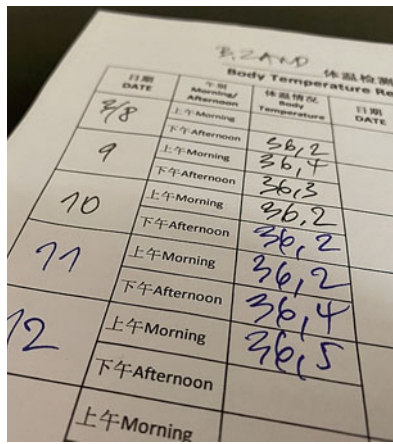 B. ZAND 体温检测
Body Temperature Re
日期 午别 体温情况 日期
DATE Morning/Afternoon Body Temperature DATE
3/8 上午Morning
下午Afternoon 36,2
9 上午Morning 36,4
下午Afternoon 36,3
10 上午Morning 36,2
下午Afternoon 36,2
11 上午Morning 36,2
下午Afternoon 36,4
12 上午Morning 36,5
下午Afternoon
上午Morning